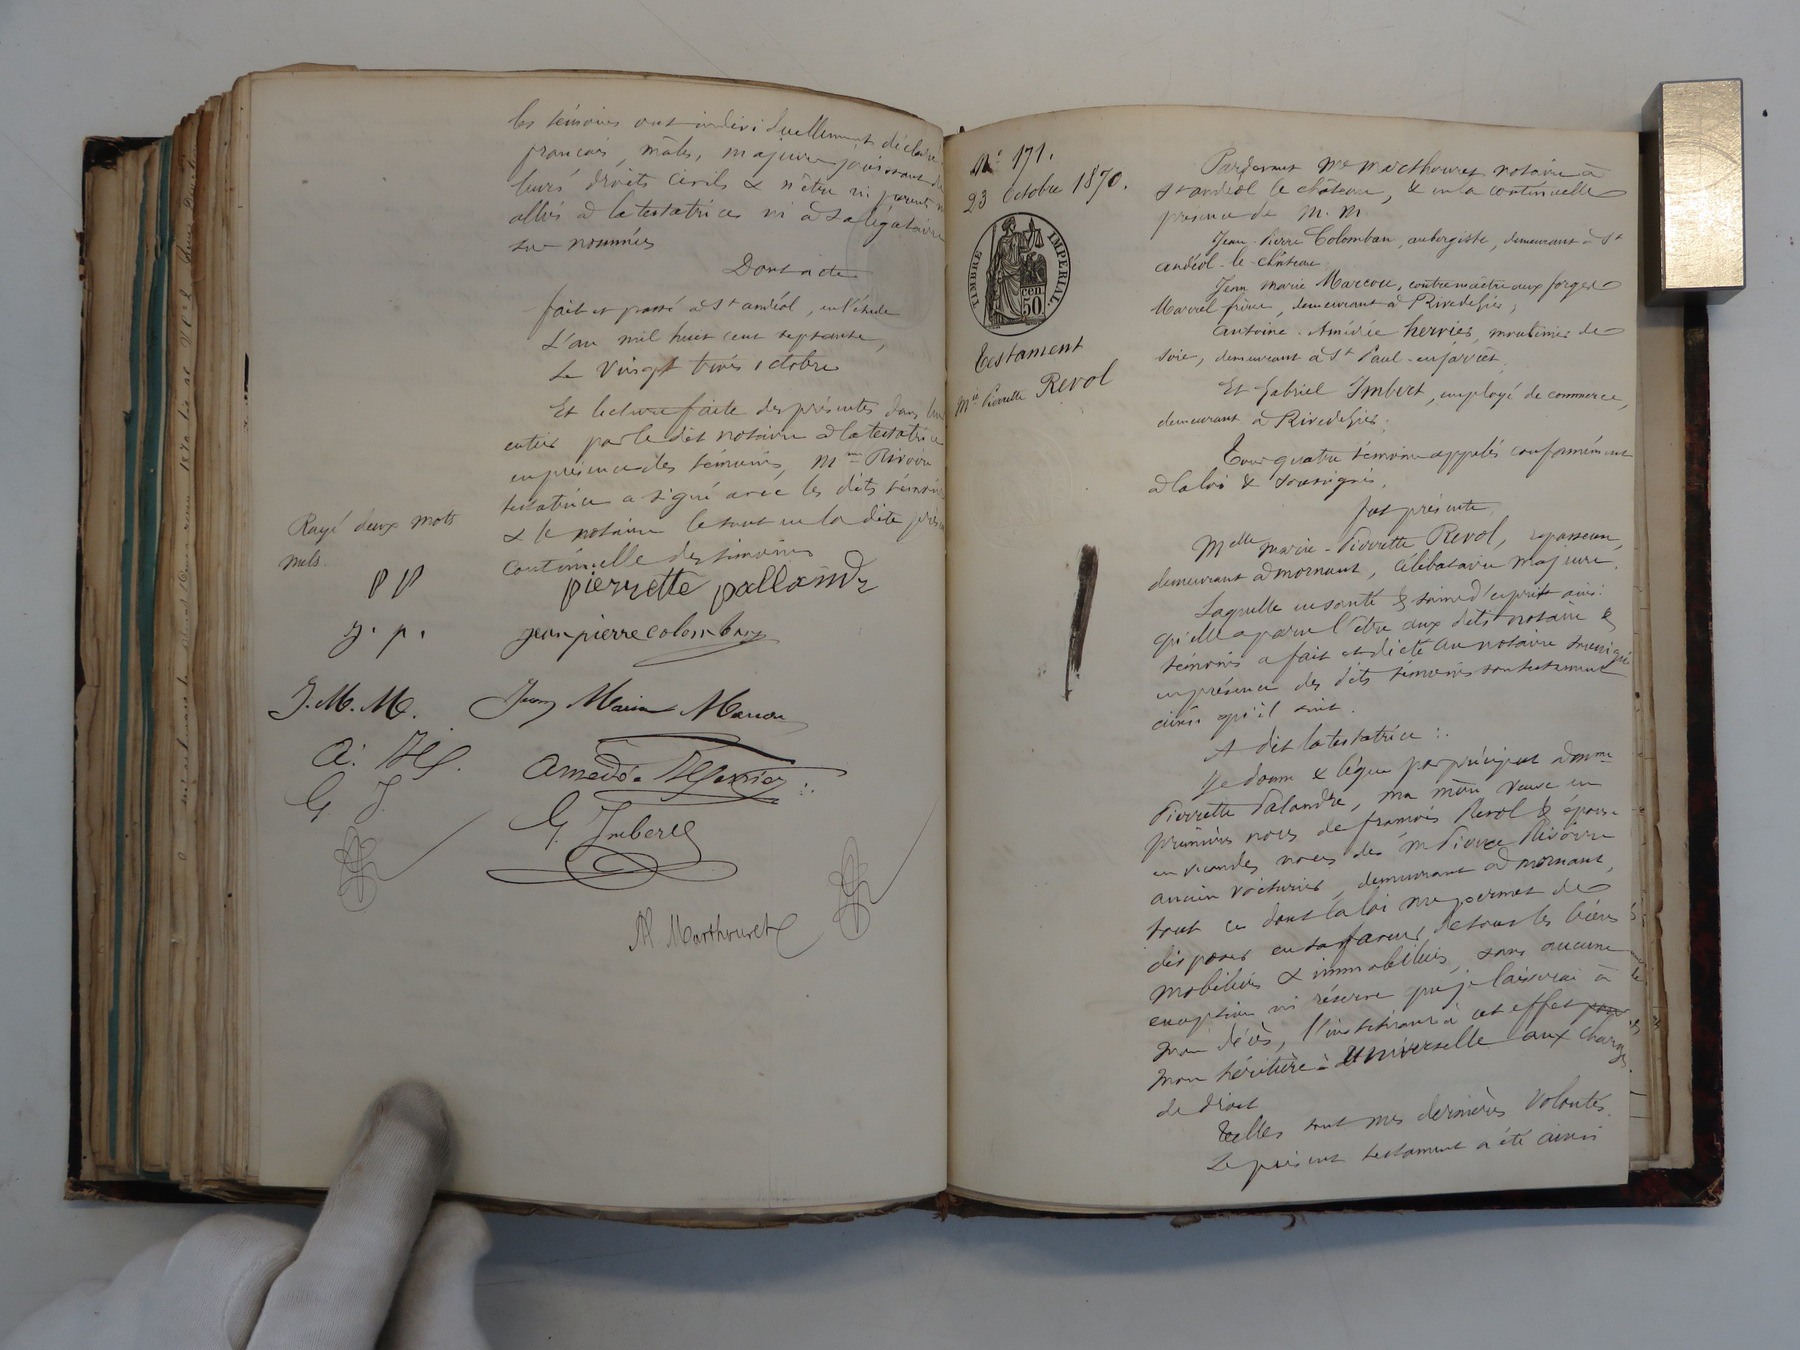 les témoins ont individuellement déclaré
français, mâles, majeurs jouissant de
leurs droits civils & n'être ni parents ni
alliés à la testatrice ni à sa légataire
sus-nommés
Dont acte
fait et passé à St andéol, en l'étude
L'an mil huit cent septante,
Le vingt trois octobre
Et lecture faite des présentes dans leur
entier par le dit notaire à la testatrice
en présence des témoins, Mme Rivoire
testatrice a signé avec les dits témoins
& le notaire le tout en la dite présence
continuelle des témoins
Rayé deux mots
nuls.
p p pierrette pallandr
j. p. jean pierre colomban
J. M. M. Jean Marie Marcou
a. H. Amédée Herrier
G. J. G. Imbert
M Marthouret
No 171.
23 octobre 1870.
TIMBRE IMPERIAL
50 cen
Testament
Mie Pierrette Revol
Pardevant Me Marthouret notaire à
St andéol le château, & en la continuelle
présence de M. M
Jean-Pierre Colomban, aubergiste, demeurant à St
andéol-le-château
Jean Marie Marcou, contremaître aux forges
Marrel frères, demeurant à Rivedegier,
Antoine-Amédée herrier, moulinier de
soie, demeurant à St Paul-en-jarret,
Et Gabriel Imbert, employé de commerce,
demeurant à Rivedegier;
Tous quatre témoins appelés conformément
à la loi & soussignés,
fut présente
Melle marie-Pierrette Revol, repasseuse,
demeurant à mornant, célibataire majeure.
Laquelle en santé & saine d'esprit ainsi
qu'elle a paru l'être aux dits notaire &
témoins a fait et dicté au notaire soussigné
en présence des dits témoins son testament
ainsi qu'il suit.
A dit la testatrice:
Je donne & lègue par préciput à Mme
Pierrette Palandre, ma mère veuve en
premières noces de françois Revol & épouse
en secondes noces de M Pierre Rivoire
ancien voiturier, demeurant à mornant,
tout ce dont la loi me permet de
disposer en sa faveur, de tous les biens
mobiliers & immobiliers, sans aucune
exception ni réserve que je laisserai à
mon décès, l'instituant à cet effet pour
mon héritière universelle aux charges
de droit
Telles sont mes dernières volontés.
Le présent testament a été ainsi